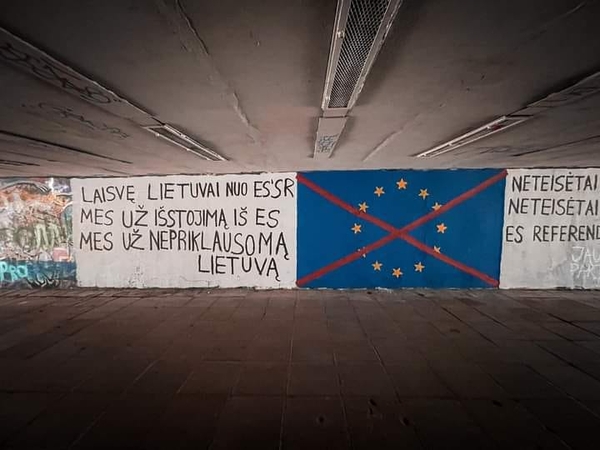 LAISVĘ LIETUVAI NUO ES'SR
MES UŽ IŠSTOJIMĄ IŠ ES
MES UŽ NEPRIKLAUSOMĄ
LIETUVĄ
NETEISĖTAI
NETEISĖTAI
ES REFEREND